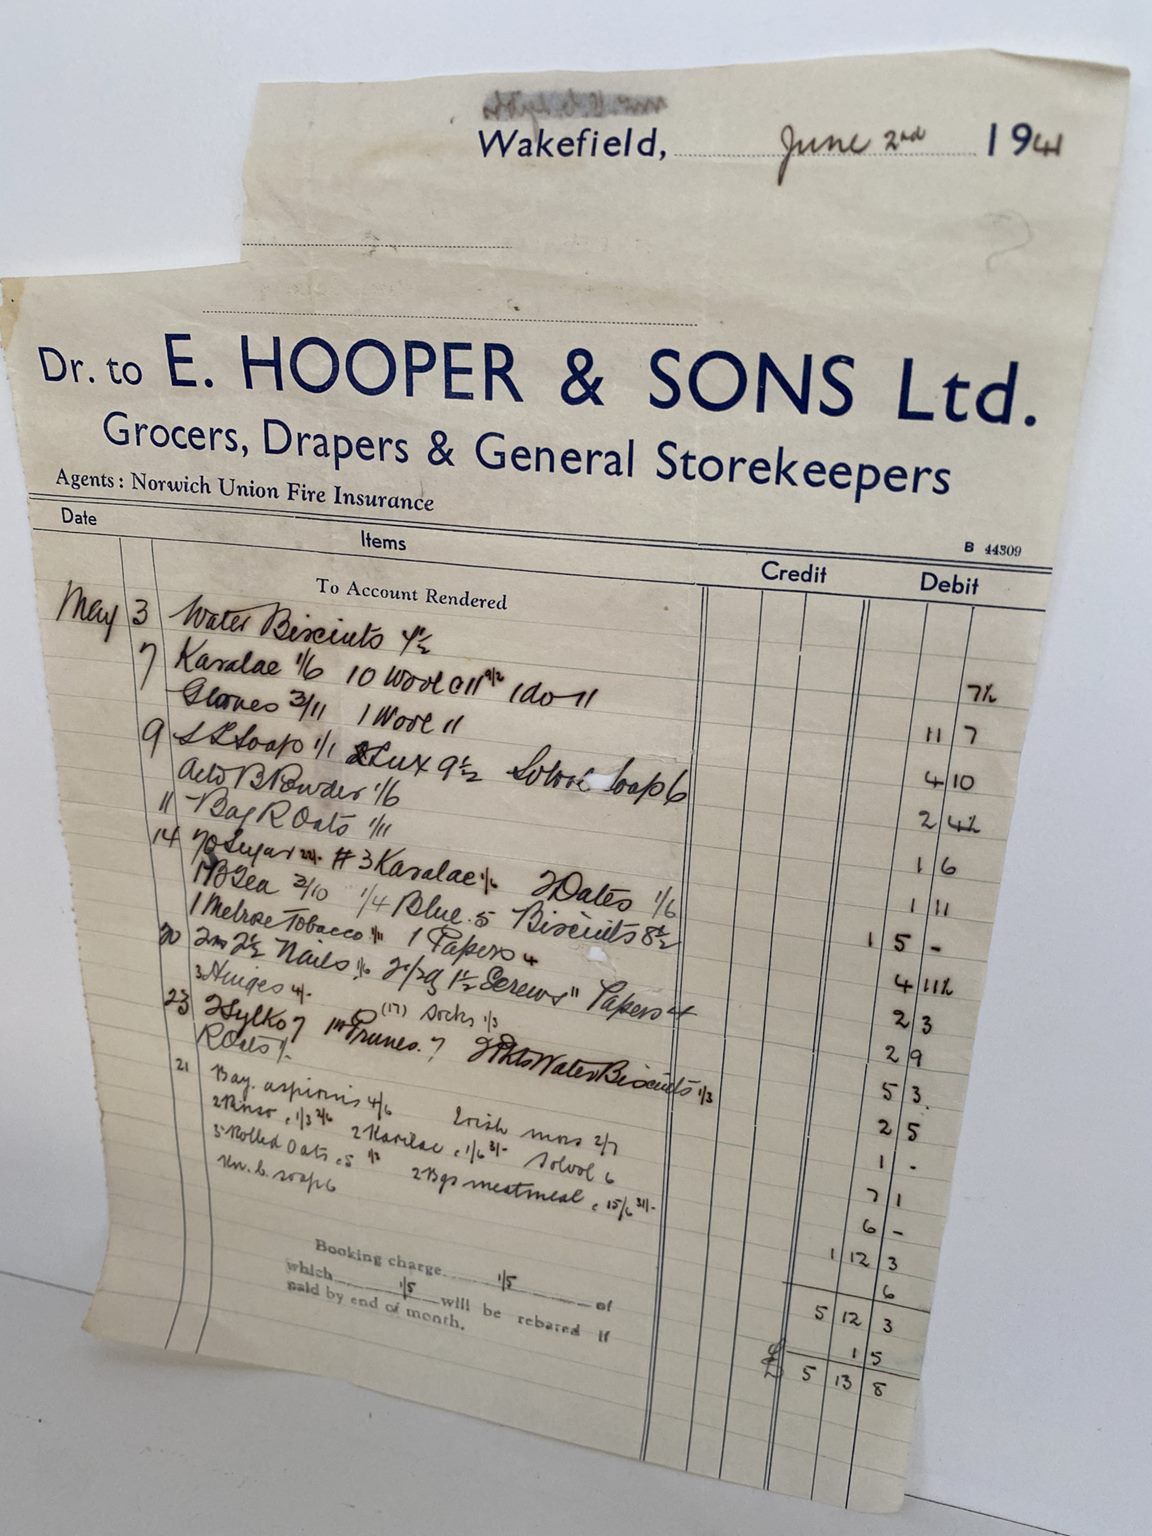 Wakefield, June 2nd 1941
Dr. to E. HOOPER & SONS Ltd.
Grocers, Drapers & General Storekeepers
Agents: Norwich Union Fire Insurance
B 44309
Date Items Credit Debit
To Account Rendered
May 3 Water Biscuits 7½
7 Karalac 1/6 10 Wool 11 9/2 1 do 11 11 7
Gloves 3/11 1 Wool 11 4 10
9 S R Soap 1/1 2 Lux 9½ Solvol Soap 6 2 4½
Acto B Powder 1/6 1 6
11 Bag R Oats 1/11 1 11
14 70 Sugar 22/- # 3 Karalac 1/6 2 Dates 1/6 1 5 -
1 lb Tea 3/10 1/4 Blue 5 Biscuits 8½ 4 11½
1 Melrose Tobacco 1/11 1 Papers 4 2 3
20 2½ Nails 1/6 1½ Screws 11 Papers 4 2 9
3 Hinges 4/- (17) Socks 1/3 5 3
23 2 Sylko 7 Prunes 7 2 Pkts Water Biscuits 1/3 2 5
R Oats 1/- 1 -
21 Bay. aspirins 4/6 Irish moss 2/7 7 1
2 Rinso . 1/3 2/6 2 Karilac . 1/6 3/- Solvol 6 6 -
3 Rolled Oats . 5 1/3 2 Bgs meatmeal . 15/6 31/- 1 12 3
soap 6 6
5 12 3
Booking charge 1/5 of
which 1/5 will be rebated if
paid by end of month.
1 5
£ 5 13 8